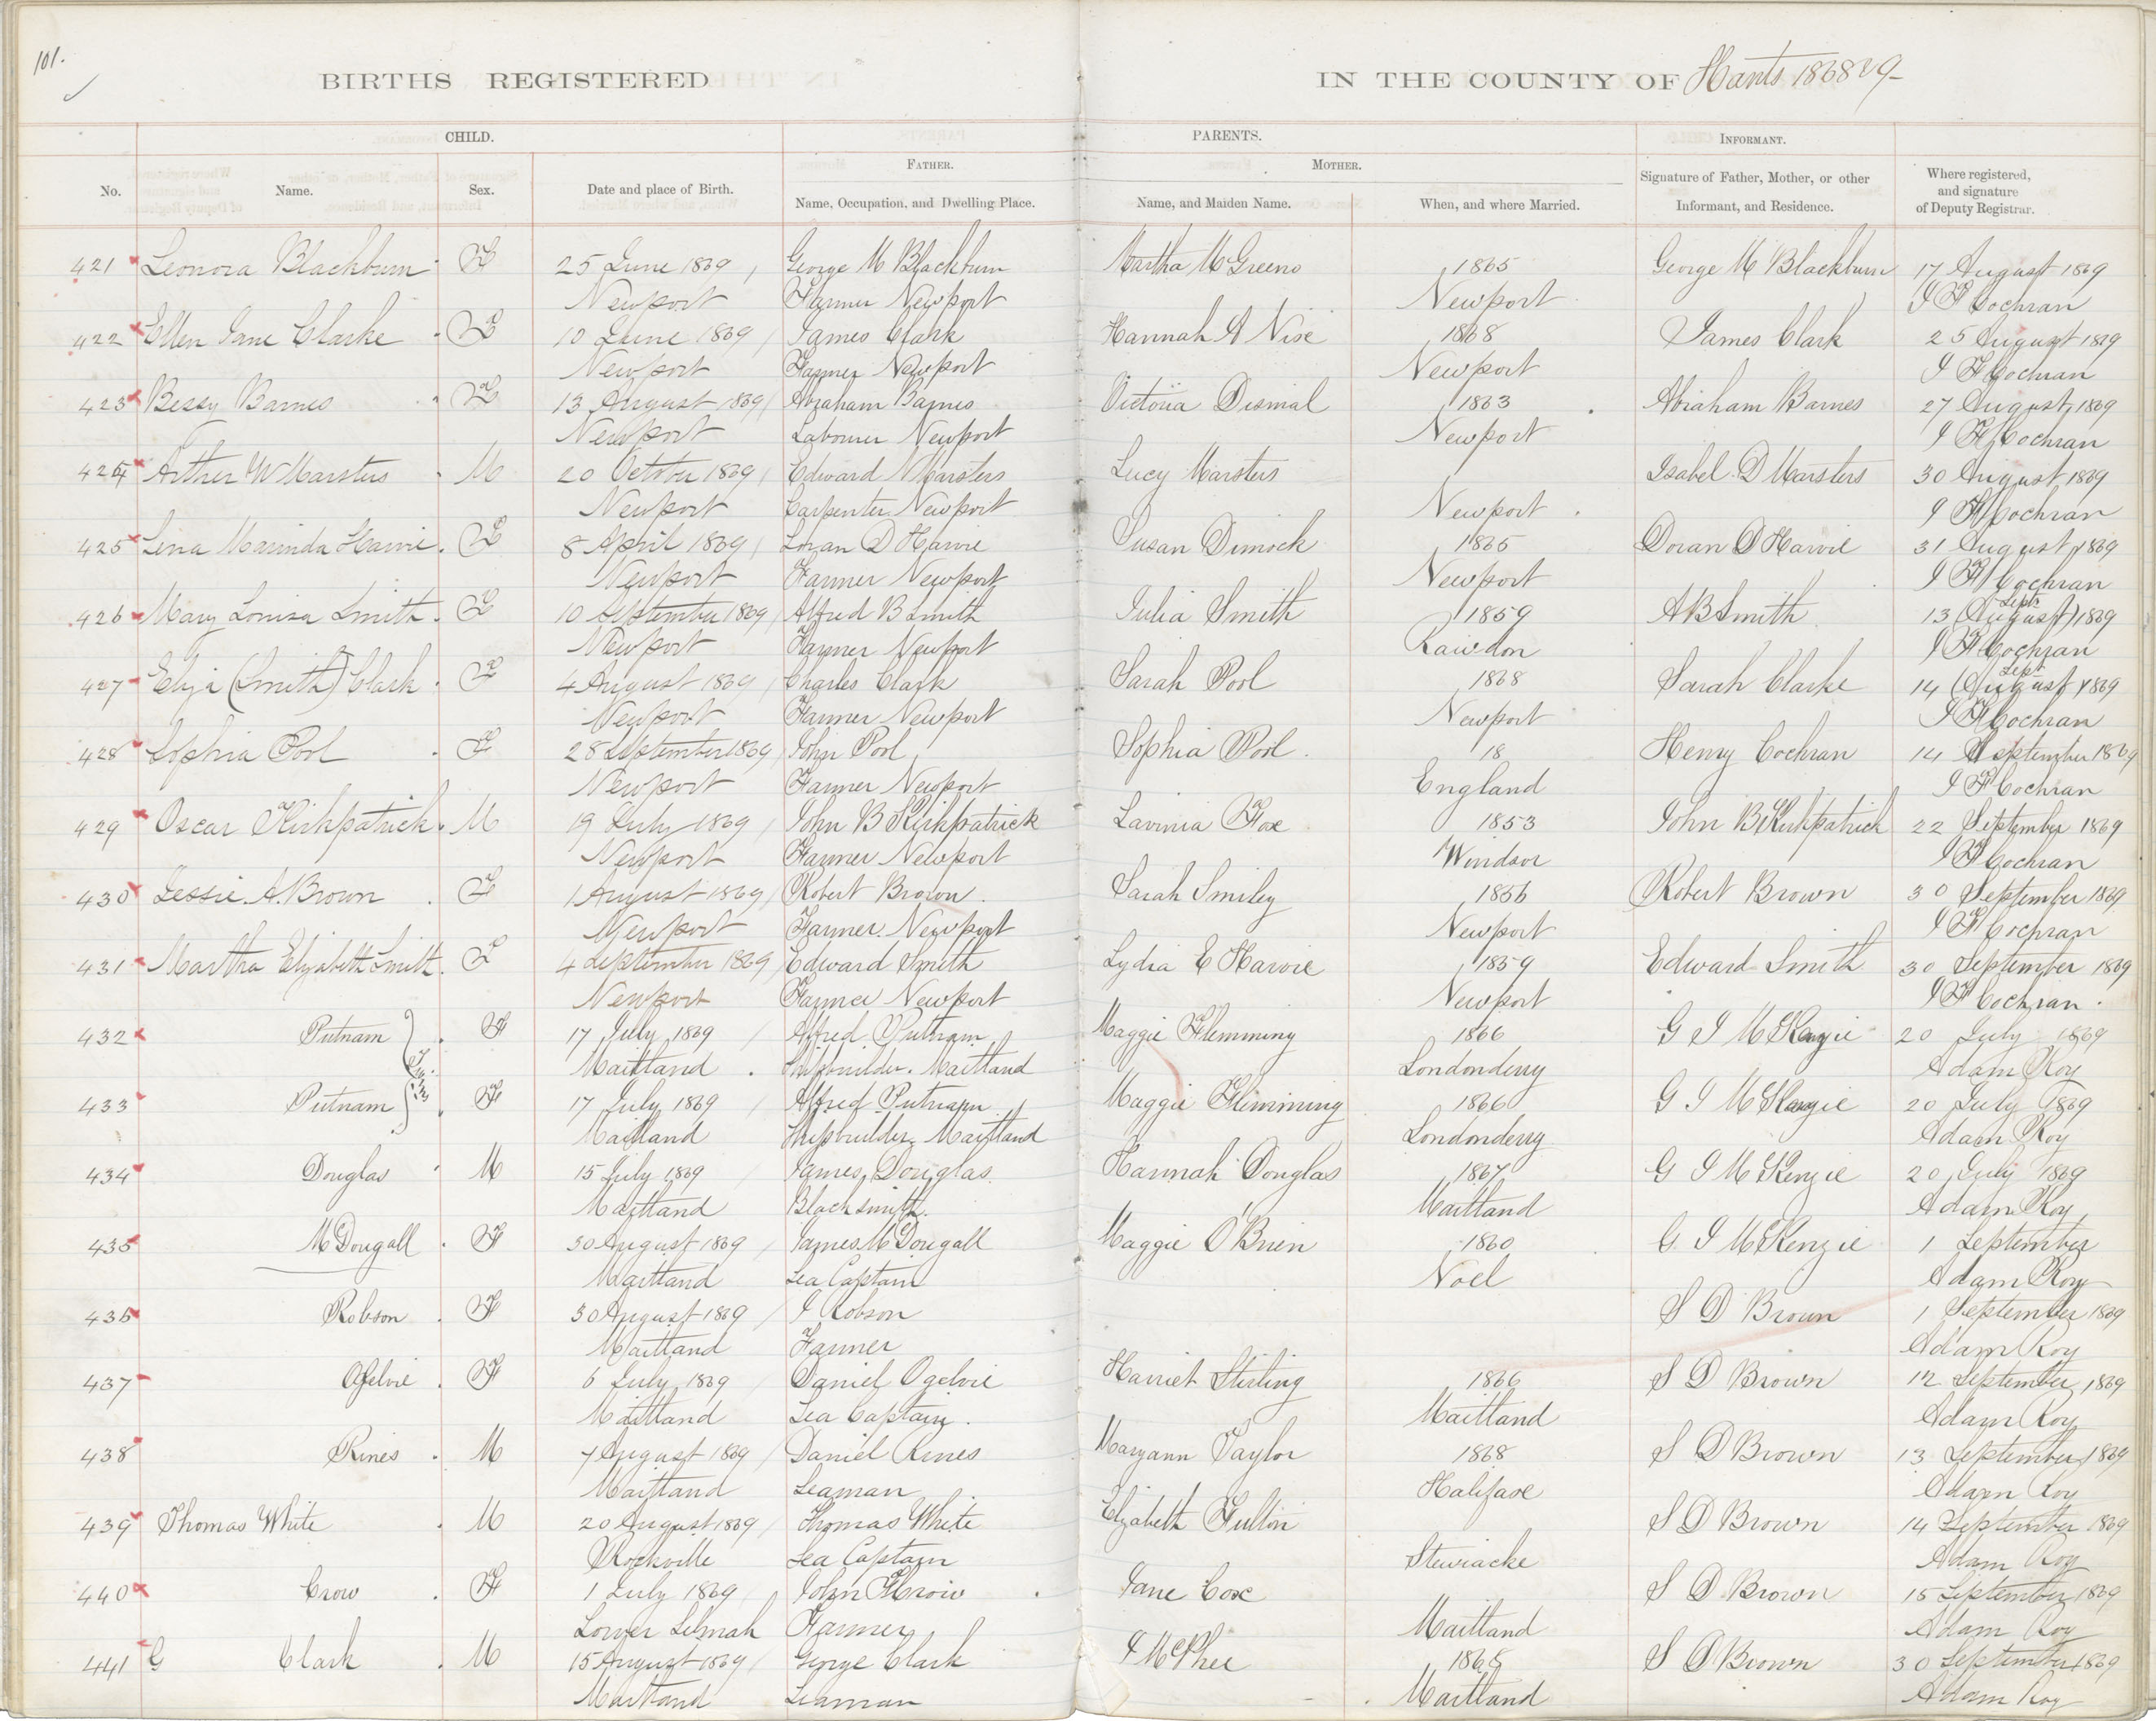 101.
BIRTHS REGISTERED IN THE COUNTY OF Hants 1868 & 9
CHILD. PARENTS. INFORMANT.
FATHER. MOTHER.
No. Name. Sex. Date and place of Birth. Name, Occupation, and Dwelling Place. Name, and Maiden Name. When, and where Married. Signature of Father, Mother, or other Informant, and Residence. Where registered, and signature of Deputy Registrar.
421 Leonora Blackburn F 25 June 1869 George M Blackburn Martha McGreeno 1865 George M Blackburn 17 August 1869
Newport Farmer Newport Newport J F Cochran
422 Ellen Jane Clarke F 10 June 1869 James Clark Hannah A Nise 1868 James Clark 25 August 1869
Newport Farmer Newport Newport J F Cochran
423 Bessy Barnes F 13 August 1869 Abraham Barnes Victoria Dismal 1863 Abraham Barnes 27 August 1869
Newport Labourer Newport Newport J F Cochran
424 Arther W Marsters M 20 October 1869 Edward N Marsters Lucy Marsters Isabel D Marsters 30 August 1869
Newport Carpenter Newport Newport J F Cochran
425 Lena Marinda Harvie F 8 April 1869 Loran D Harvie Susan Dimock 1865 Doran D Harvie 31 August 1869
Newport Farmer Newport Newport J F Cochran
426 Mary Louisa Smith F 10 September 1869 Alfred B Smith Julia Smith 1859 A B Smith 13 (August) Sept 1869
Newport Farmer Newport Rawdon J F Cochran
427 Eliza (Smith) Clark F 4 August 1869 Charles Clark Sarah Pool 1868 Sarah Clarke 14 (August) Sept 1869
Newport Farmer Newport Newport J F Cochran
428 Sophia Pool F 28 September 1869 John Pool Sophia Pool 18 Henry Cochran 14 September 1869
Newport Farmer Newport England J F Cochran
429 Oscar Kirkpatrick M 19 July 1869 John B Kirkpatrick Lavinia Fox 1853 John B Kirkpatrick 22 September 1869
Newport Farmer Newport Windsor J F Cochran
430 Jessie A. Brown F 1 August 1869 Robert Brown Sarah Smiley 1856 Robert Brown 30 September 1869
Newport Farmer Newport Newport J F Cochran
431 Martha Elizabeth Smith F 4 September 1869 Edward Smith Lydia E Harvie 1859 Edward Smith 30 September 1869
Newport Farmer Newport Newport J F Cochran
432 Putnam F 17 July 1869 Alfred Putnam Maggie Flemming 1866 G J McKenzie 20 July 1869
Maitland Shipbuilder Maitland Londonderry Adam Roy
433 Putnam F 17 July 1869 Alfred Putnam Maggie Flemming 1866 G J McKenzie 20 July 1869
Maitland Shipbuilder Maitland Londonderry Adam Roy
434 Douglas M 15 July 1869 James Douglas Hannah Douglas 1867 G J McKenzie 20 July 1869
Maitland Blacksmith Maitland Adam Roy
435 McDougall F 30 August 1869 James McDougall Maggie O'Brien 1860 G J McKenzie 1 September
Maitland Sea Captain Noel Adam Roy
436 Robson F 30 August 1869 J Robson S D Brown 1 September 1869
Maitland Farmer Adam Roy
437 Ogelvie F 6 July 1869 Daniel Ogelvie Harriet Stirling 1866 S D Brown 12 September 1869
Maitland Sea Captain Maitland Adam Roy
438 Rines M 7 August 1869 Daniel Rines Maryann Taylor 1868 S D Brown 13 September 1869
Maitland Seaman Halifax Adam Roy
439 Thomas White M 20 August 1869 Thomas White Elizabeth Fulton S D Brown 14 September 1869
Rockville Sea Captain Stewiacke Adam Roy
440 Crow F 1 July 1869 John Crow Jane Cox S D Brown 15 September 1869
Lower Selmah Farmer Maitland Adam Roy
441 G Clark M 15 August 1869 George Clark J McPhee 1868 S D Brown 30 September 1869
Maitland Seaman Maitland Adam Roy